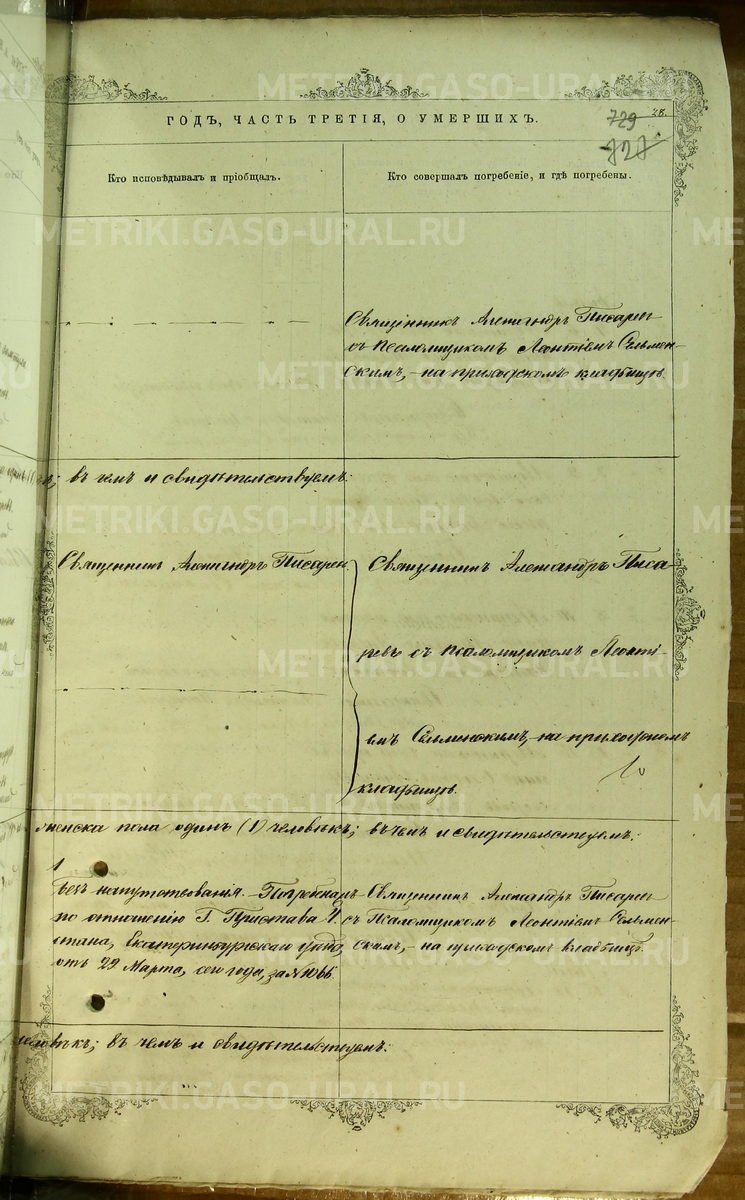 ГОДЪ, ЧАСТЬ ТРЕТІЯ, О УМЕРШИХЪ.
729
28.
727
Кто исповѣдывалъ и пріобщалъ.
Кто совершалъ погребеніе, и гдѣ погребены.
Священникъ Александръ Писаревъ
съ псаломщикомъ Леонтіемъ Сельмен-
скимъ, - на приходскомъ кладбищѣ.
въ чемъ и свидѣтельствуемъ:
Священникъ Александръ Писаревъ.
Священникъ Александръ Писа-
ревъ съ псаломщикомъ Леонті-
емъ Сельменскимъ, - на приходскомъ
кладбищѣ.
женска пола одинъ (1) человѣкъ; въ чемъ и свидѣтельствуемъ:
1
Безъ напутствованія. Погребенъ
по отношенію Г. Пристава
стана, Екатеринбургскаго уѣзда,
отъ 29 Марта, сего года, за № 1066.
Священникъ Александръ Писаревъ
съ Псаломщикомъ Леонтіемъ Сельмен-
скимъ, - на приходскомъ кладбищѣ.
человѣкъ; въ чемъ и свидѣтельствуемъ:
METRIKI.GASO-URAL.RU